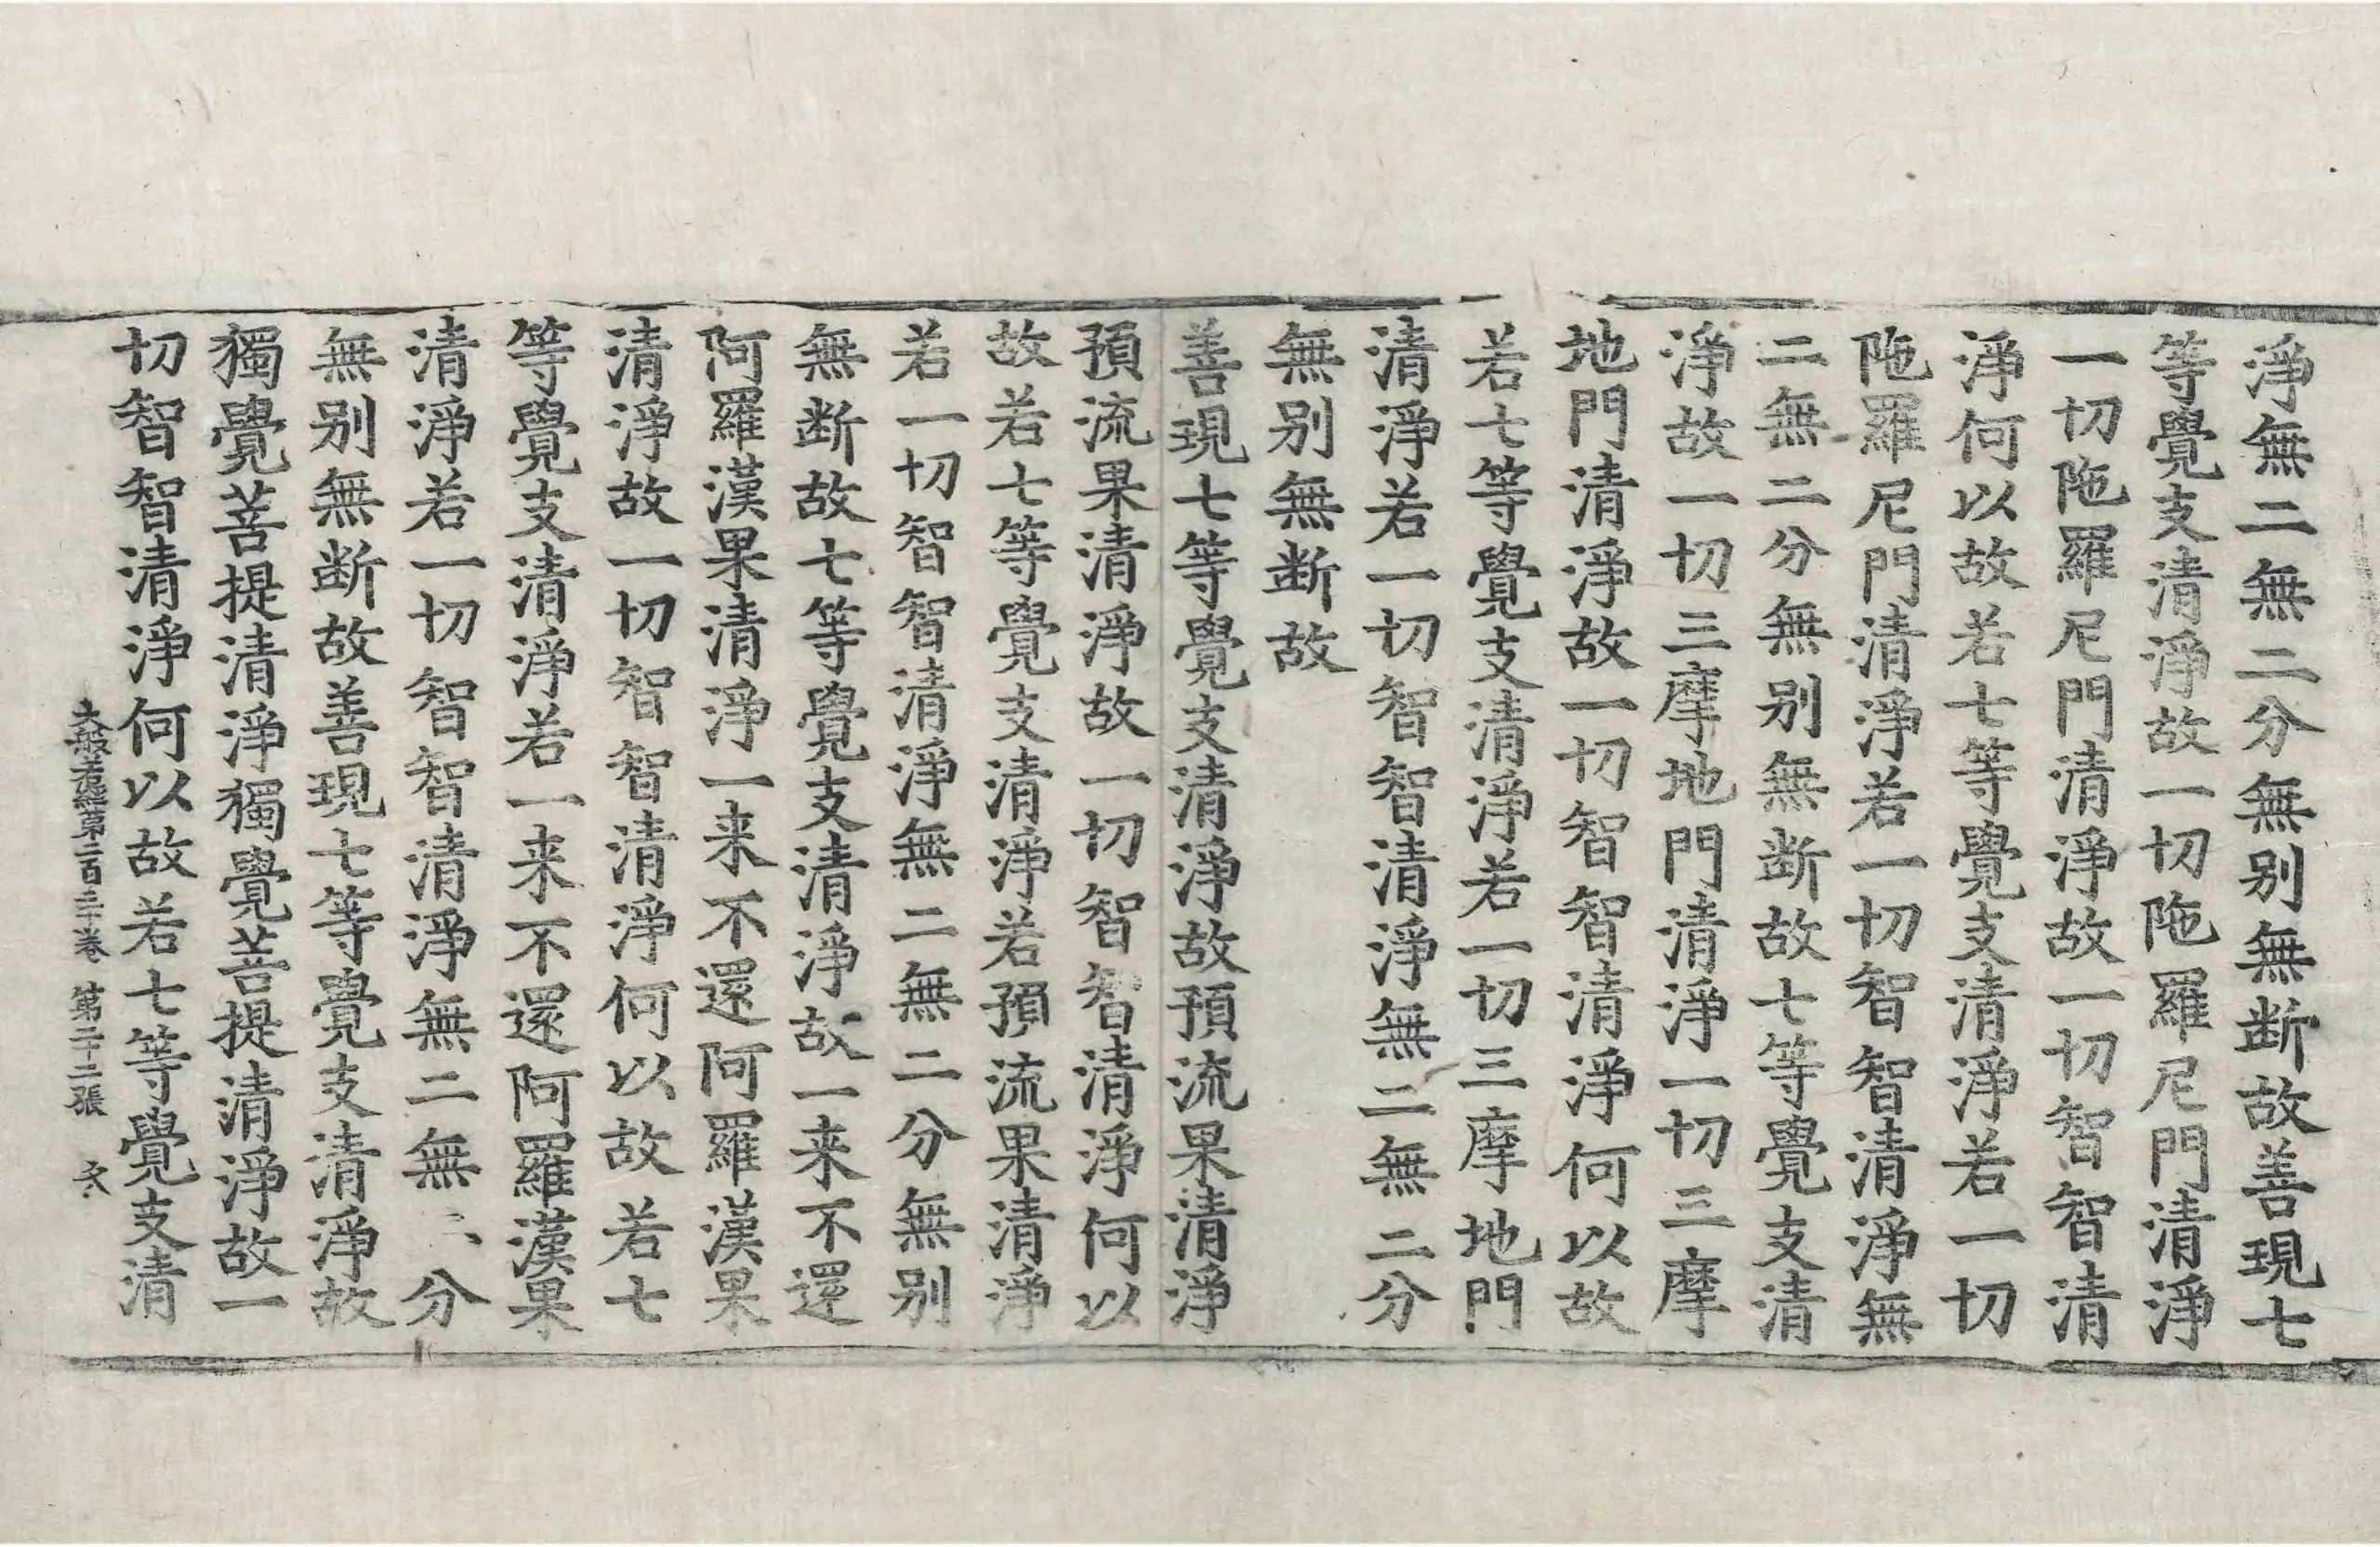 淨無二無二分無别無断故善現七
等覺支清淨故一切陁羅尼門清淨
一切陁羅尼門清淨故一切智智清
淨何以故若七等覺支清淨若一切
陁羅尼門清淨若一切智智清淨無
二無二分無别無断故七等覺支清
淨故一切三摩地門清淨一切三摩
地門清淨故一切智智清淨何以故
若七等覺支清淨若一切三摩地門
清淨若一切智智清淨無二無二分
無别無断故
善現七等覺支清淨故預流果清淨
預流果清淨故一切智智清淨何以
故若七等覺支清淨若預流果清淨
若一切智智清淨無二無二分無别
無断故七等覺支清淨故一来不還
阿羅漢果清淨一来不還阿羅漢果
清淨故一切智智清淨何以故若七
等覺支清淨若一来不還阿羅漢果
清淨若一切智智清淨無二無二分
無别無断故善現七等覺支清淨故
獨覺菩提清淨獨覺菩提清淨故一
切智智清淨何以故若七等覺支清
大般若經第二百三十卷 第二十二張